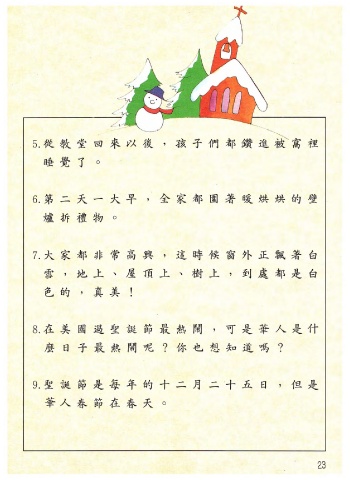 5.從教堂回來以後，孩子們都鑽進被窩裡
睡覺了。
6.第二天一大早，全家都圍著暖烘烘的壁
爐拆禮物。
7.大家都非常高興，這時候窗外正飄著白
雪，地上、屋頂上、樹上，到處都是白
色的，真美！
8.在美國過聖誕節最熱鬧，可是華人是什
麼日子最熱鬧呢？你也想知道嗎？
9.聖誕節是每年的十二月二十五日，但是
華人春節在春天。
23